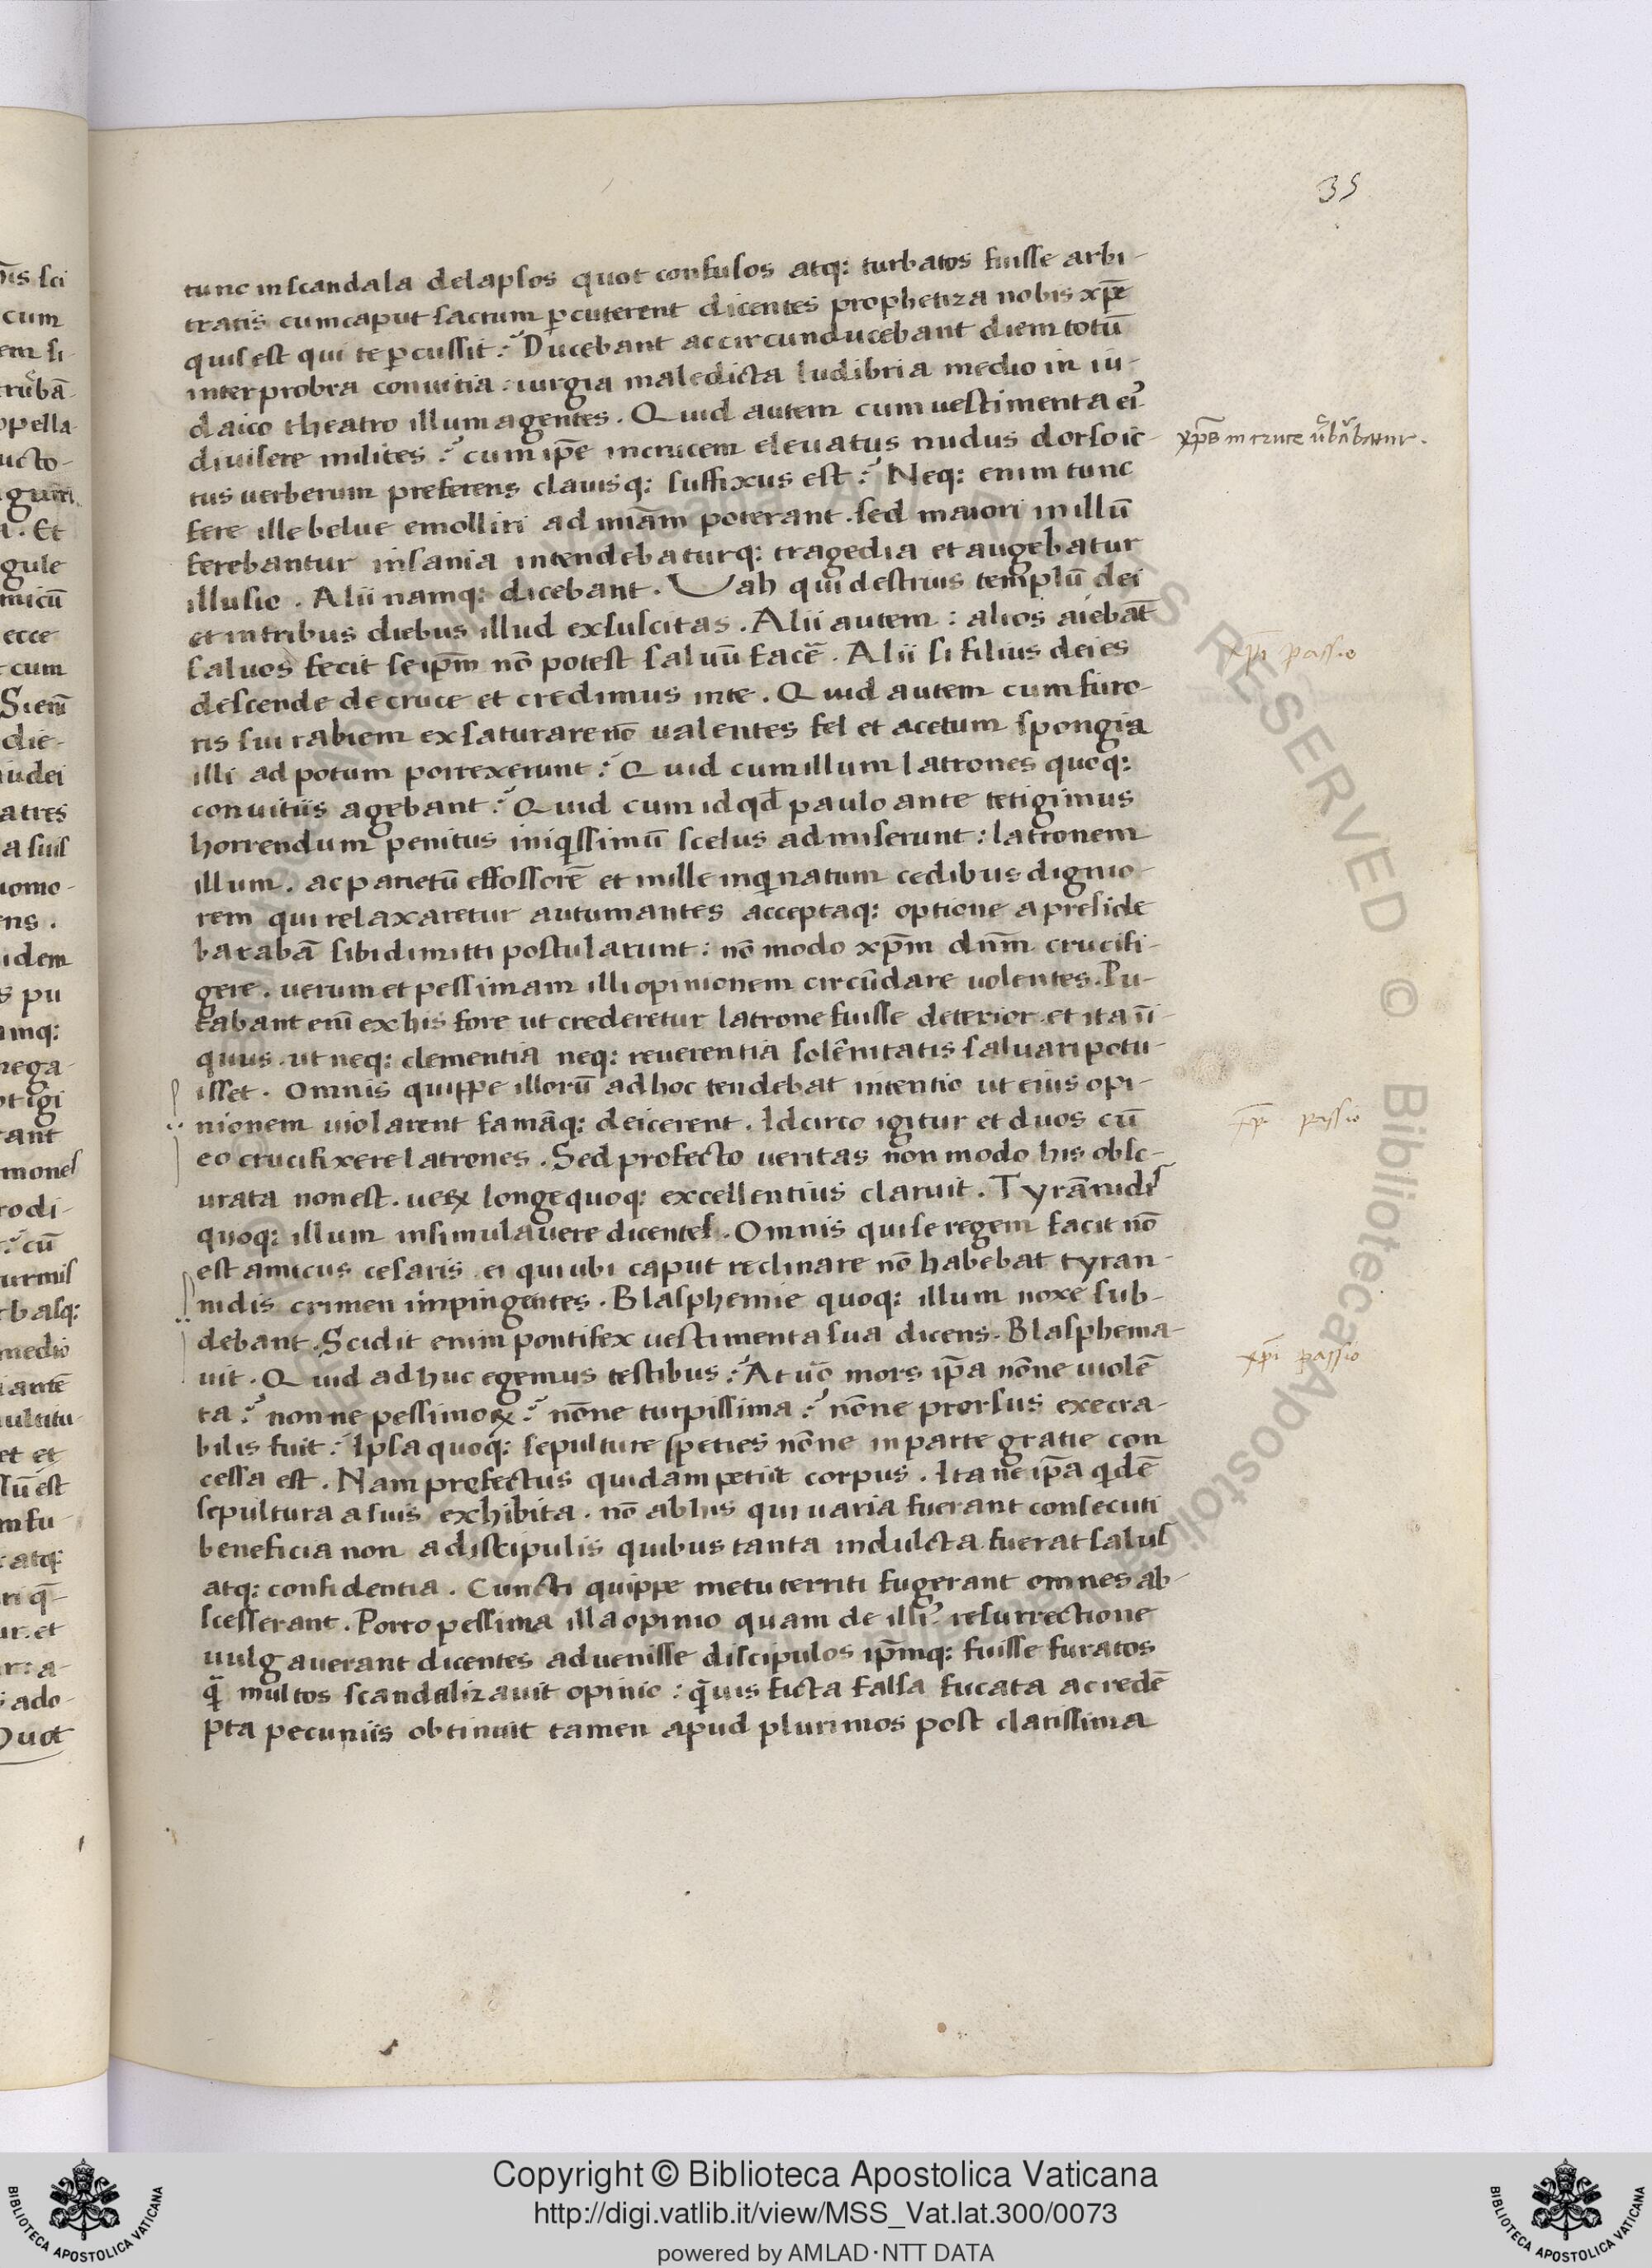 35
tunc in scandala delapsos quot confusos atq: turbatos fuisse arbi-
tratis cum caput sacrum ꝑcuterent dicentes prophetiza nobis xp̄e
quis est qui te ꝑcussit? Ducebant ac circunducebant diem totū
inter probra conuitia iurgia maledicta ludibria medio in iu-
daico theatro illum agentes. Quid autem cum uestimenta eiꝰ
diuisere milites? cum ip̄e in crucem eleuatus nudus dorso ic-
tus uerberum preferens clauisq: suffixus est? Neq: enim tunc
fere ille belue emolliri ad miām poterant. sed maiori in illū
ferebantur insania intendebaturq: tragedia et augebatur
illusio. Alii namq: dicebant. Vah qui destruis templū dei
et in tribus diebus illud exsuscitas. Alii autem: alios aiebāt
saluos fecit seip̄m nō potest saluū facē. Alii si filius dei es
descende de cruce et credimus in te. Quid autem cum furo-
ris sui rabiem exsaturare nō ualentes fel et acetum spongia
illi ad potum porrexerunt? Quid cum illum latrones quoq:
conuitiis agebant? Quid cum id qd̄ paulo ante tetigimus
horrendum penitus iniqissimū scelus admiserunt: latronem
illum. ac parietū effossorē et mille inqinatum cedibus dignio-
rem qui relaxaretur autumantes acceptaq: optione a preside
barabā sibi dimitti postularunt: nō modo xp̄m dn̄m crucifi-
gere. uerum et pessimam illi opinionem circūdare uolentes. Pu-
tabant enī ex his fore ut crederetur latrone fuisse deterior et ita īi-
quus. ut neq: clementia neq: reuerentia solēnitatis saluari potu-
isset. Omnis quippe illorū ad hoc tendebat intentio ut eius opi-
nionem uiolarent famāq: deicerent. Idcirco igitur et duos cū
eo crucifixere latrones. Sed profecto ueritas non modo his obsc-
urata non est. ueꝝ longe quoq: excellentius claruit. Tyrānidis
quoq: illum insimulauere dicentes. Omnis qui se regem facit nō
est amicus cesaris. ei qui ubi caput reclinare nō habebat tyran-
nidis crimen impingentes. Blasphemie quoq: illum noxe sub-
debant. Scidit enim pontifex uestimenta sua dicens. Blasphema-
uit. Quid adhuc egemus testibus? At uo mors ip̄a nōne uiolē
ta? nonne pessimoꝝ? nōne turpissima? nōne prorsus execra-
bilis fuit? Ipsa quoq: sepulture species nōne in parte gratie con
cessa est. Nam profectus quidam petiit corpus. Itane ip̄a qdē
sepultura a suis exhibita. nō ab his qui uaria fuerant consecuti
beneficia non a discipulis quibus tanta indulcta fuerat salus
atq: confidentia. Cuncti quippe metu territi fugerant omnes ab-
scesserant. Porro pessima illa opinio quam de illiꝰ resurrectione
uulgauerant dicentes aduenisse discipulos ip̄mq: fuisse furatos
q̄ multos scandalizauit opinio: q̄uis ficta falsa fucata ac redē
pta pecuniis obtinuit tamen apud plurimos post clarissima
xp̄i passio
xp̄i passio
Copyright © Biblioteca Apostolica Vaticana
http://digi.vatlib.it/view/MSS_Vat.lat.300/0073
powered by AMLAD·NTT DATA
BIBLIOTECA APOSTOLICA VATICANA
BIBLIOTECA APOSTOLICA VATICANA